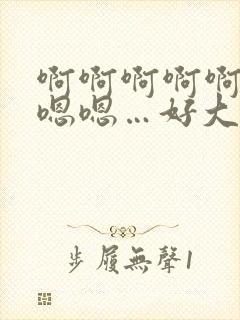 啊啊啊啊啊
嗯嗯…好大
步履無聲1